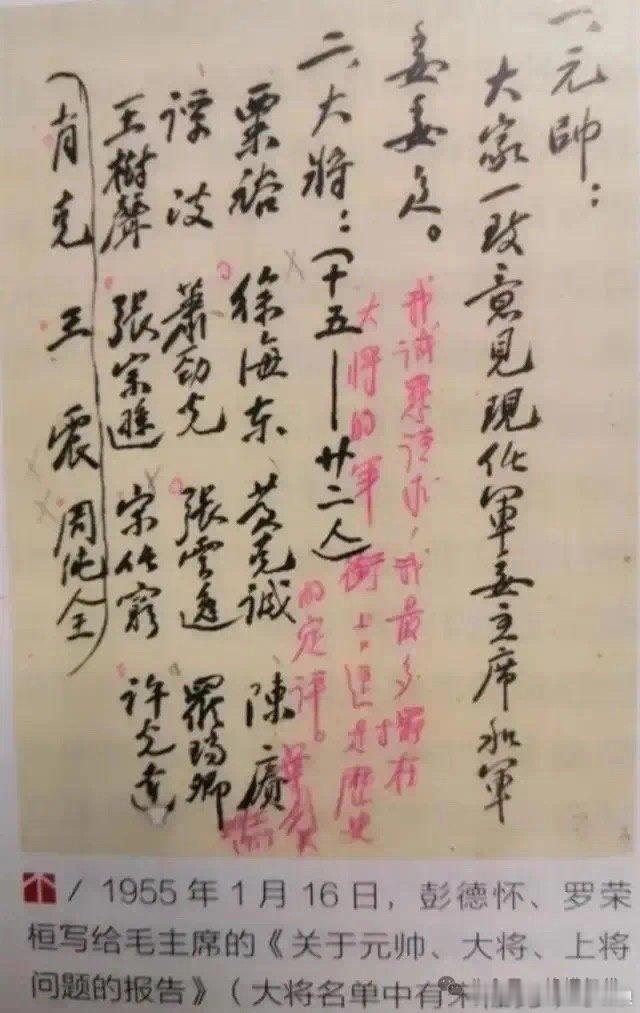 一、元帥：
大家一致意見現任軍委主席和軍
委委員。
二、大將：（十五——廿二人）
粟裕 徐海东 黄克诚 陳賡
谭政 蕭劲光 張雲逸 羅瑞卿
王樹聲 張宗遜 宋任窮 许光達
（肖克 王震 周純全）
我诚恳请求，我最多授在
大将的军衔上，這是歷史
的定评。
/ 1955年1月16日，彭德怀、罗荣
桓写给毛主席的《关于元帅、大将、上将
问题的报告》（大将名单中有